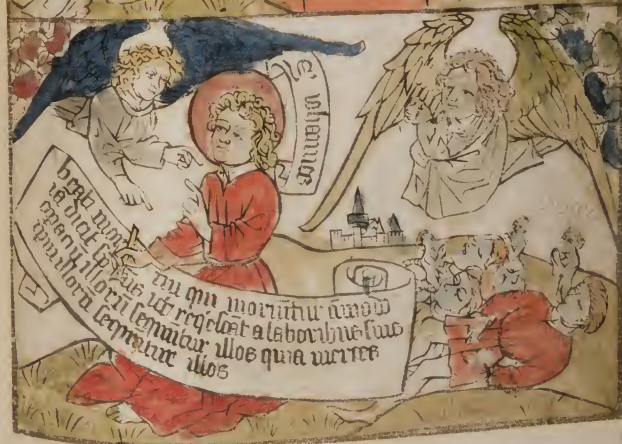 S' iohannes
beati mortui qui moriūtur ī dño
ia dicit spūs ut reqescāt a laboribus suis
opera illorū sequuntur illos quia merces
illorū sequntur illos